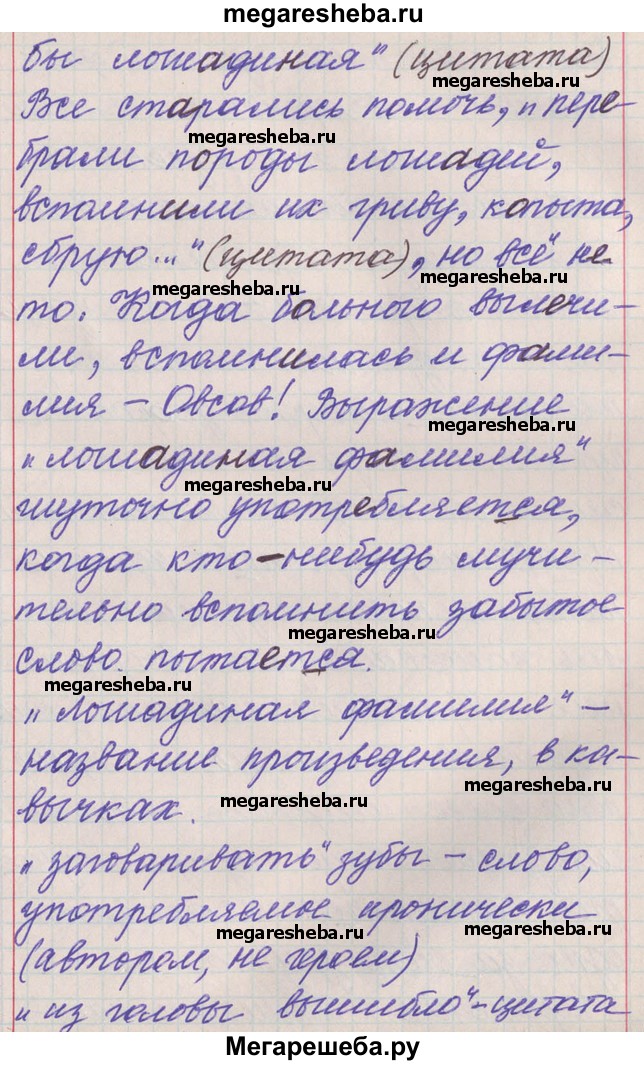 megaresheba.ru
бы лошадиная" (цитата)
megaresheba.ru
Все старались помочь, „пере-
megaresheba.ru
брали породы лошадей,
вспомнили их гриву, копыта,
сбрую..." (цитата), но всё не
megaresheba.ru
то. Когда больного вылечи-
ли, вспомнилась и фами-
лия – Овсов! Выражение
megaresheba.ru
„лошадиная фамилия"
megaresheba.ru
шуточно употребляется,
когда кто-нибудь мучи-
тельно вспомнить забытое
megaresheba.ru
слово пытается.
megaresheba.ru
„Лошадиная фамилия" –
название произведения, в ка-
megaresheba.ru
вычках.
megaresheba.ru
„заговаривать" зубы – слово,
употребляемое иронически
megaresheba.ru
megaresheba.ru
(автором, не героем)
„из головы вышибло" – цитата
Мегарешеба.ру